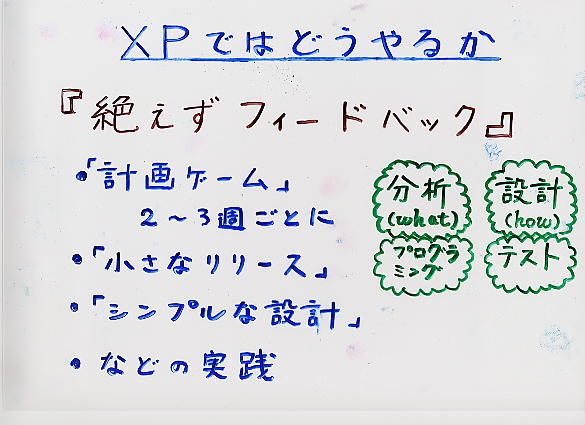 XPではどうやるか
『絶えずフィードバック』
・「計画ゲーム」
2～3週ごとに
・「小さなリリース」
・「シンプルな設計」
・などの実践
分析
(what)
設計
(how)
プログラ
ミング
テスト